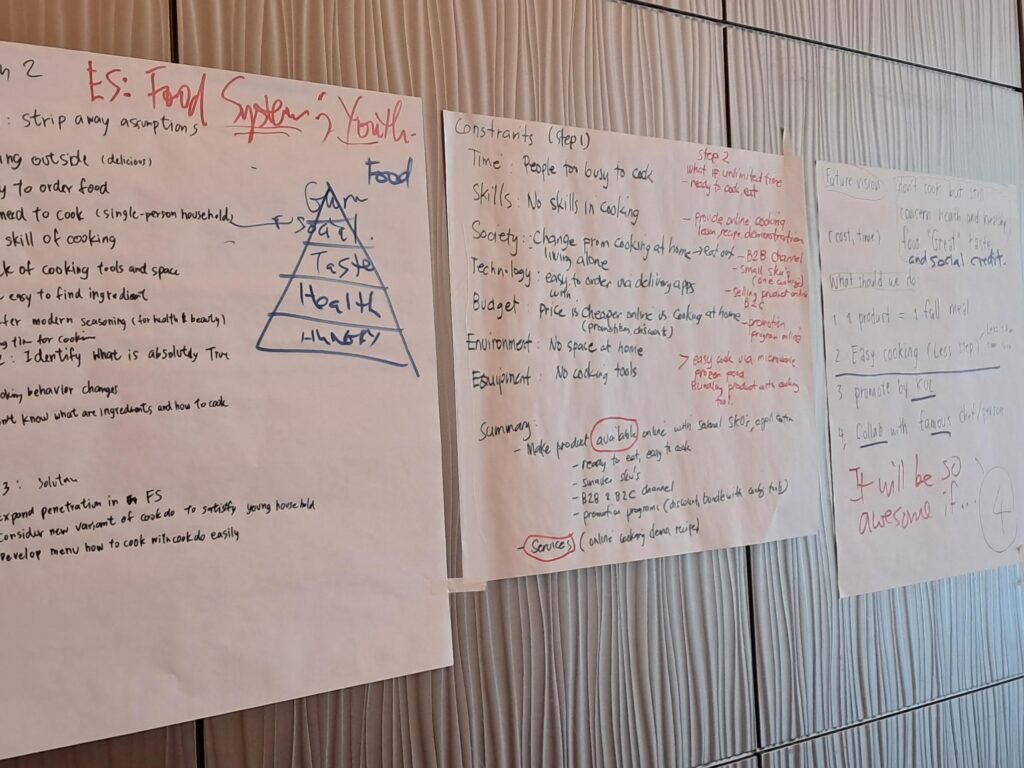 2
ES: Food System ; Youth.
: strip away assumptions
outside (delicious)
to order food
need to cook (single-person household)
skill of cooking
of cooking tools and space
easy to find ingredient
modern seasoning (for health & beauty)
for
: Identify what is absolutely True
behavior changes
know what are ingredients and how to cook
3 : Solution
Expand penetration in FS
Consider new variant of cookdo to satisfy young household
Develop menu how to cook with cookdo easily
Food
Glam
Social
Taste
Health
Hungry
Constraints (Step 1)
Time : People too busy to cook
Skills : No skills in cooking
Society : Change from cooking at home → eat out
living alone
Technology : easy to order via delivery apps
with
Budget : Price is cheaper online vs cooking at home
(promotion, discount)
Environment : No space at home
Equipment : No cooking tools
Summary :
- Make product available online with several SKUs, application
- ready to eat, easy to cook
- smaller sku's
- B2B & B2C channel
- promotion programs (discount, bundle with
- Services (online cooking demo, recipe)
Step 2
What if unlimited time
- ready to cook eat
- provide online cooking
learn, recipe demonstration
- B2B Channel
- small sku's
(one cooking)
- selling product online
B2C
- promotion
program online
> easy cook via microwave
frozen food
Bundling product with cooking
tool.
Future visions
(cost, time)
don't cook but still
concern health and nutrition,
food "Great" taste
and social credit.
What should we do
1. 1 product = 1 full meal
2. Easy cooking (Less step)
3 promote by KOL
4. Collab with famous chef/person
It will be so
awesome if...
4